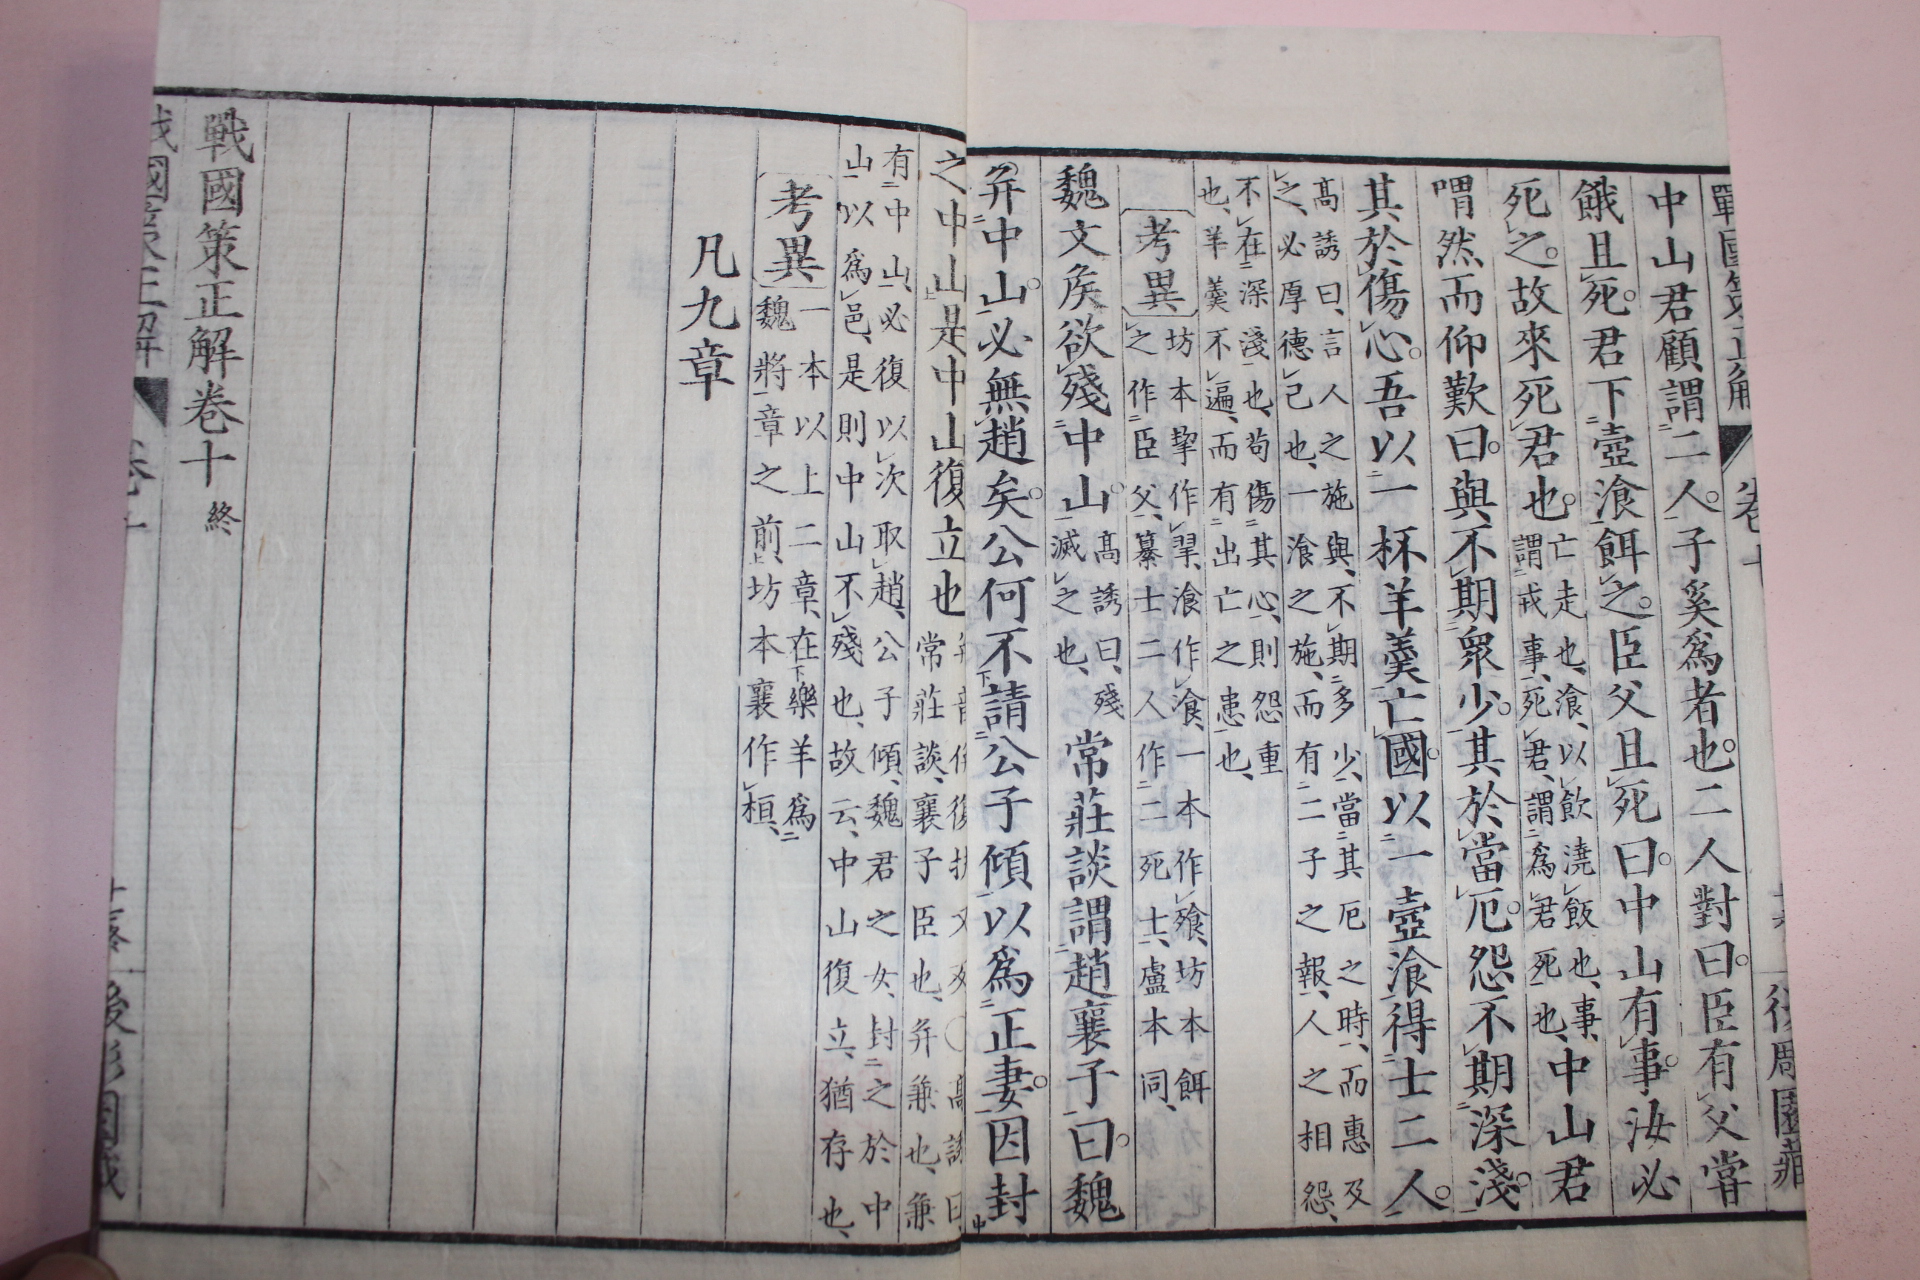 戰國策正解
卷十
後彫園藏
中山君顧謂二人子奚爲者也二人對曰臣有父甞
餓且死君下壺飡餌之臣父且死曰中山有事汝必
死之故來死君也
亡走也、飡、以飲澆飯也、事、
謂戎事、死君、謂爲君死也、
中山君
喟然而仰歎曰與不期衆少其於當厄怨不期深淺
其於傷心吾以一杯羊羹亡國以一壺飡得士二人
高誘曰、言人之施與、不期多少、當其厄之時、而惠及
之、必厚德己也、一飡之施、而有二子之報、人之相怨、
不在深淺也、苟傷其心、則怨重
也、羊羹不遍、而有出亡之患也、
考異
坊本挈作㧱、飡作飧、一本作飱、坊本餌
之作臣父、纂士二人作二死士、盧本同、
魏文矦欲殘中山
高誘曰、殘
滅之也、
常莊談謂趙襄子曰魏
幷中山必無趙矣公何不請公子傾以爲正妻因封
之中山是中山復立也
常莊談、襄子臣也、幷兼也、兼
有中山、必復以次取趙、公子傾、魏君之女、封之於中
山以爲邑、是則中山不殘也、故云、中山復立、猶存也、
考異
一本以上二章、在樂羊爲
魏將章之前、坊本襄作桓、
凡九章
戰國策正解卷十終
戰國策正解
後彫園藏